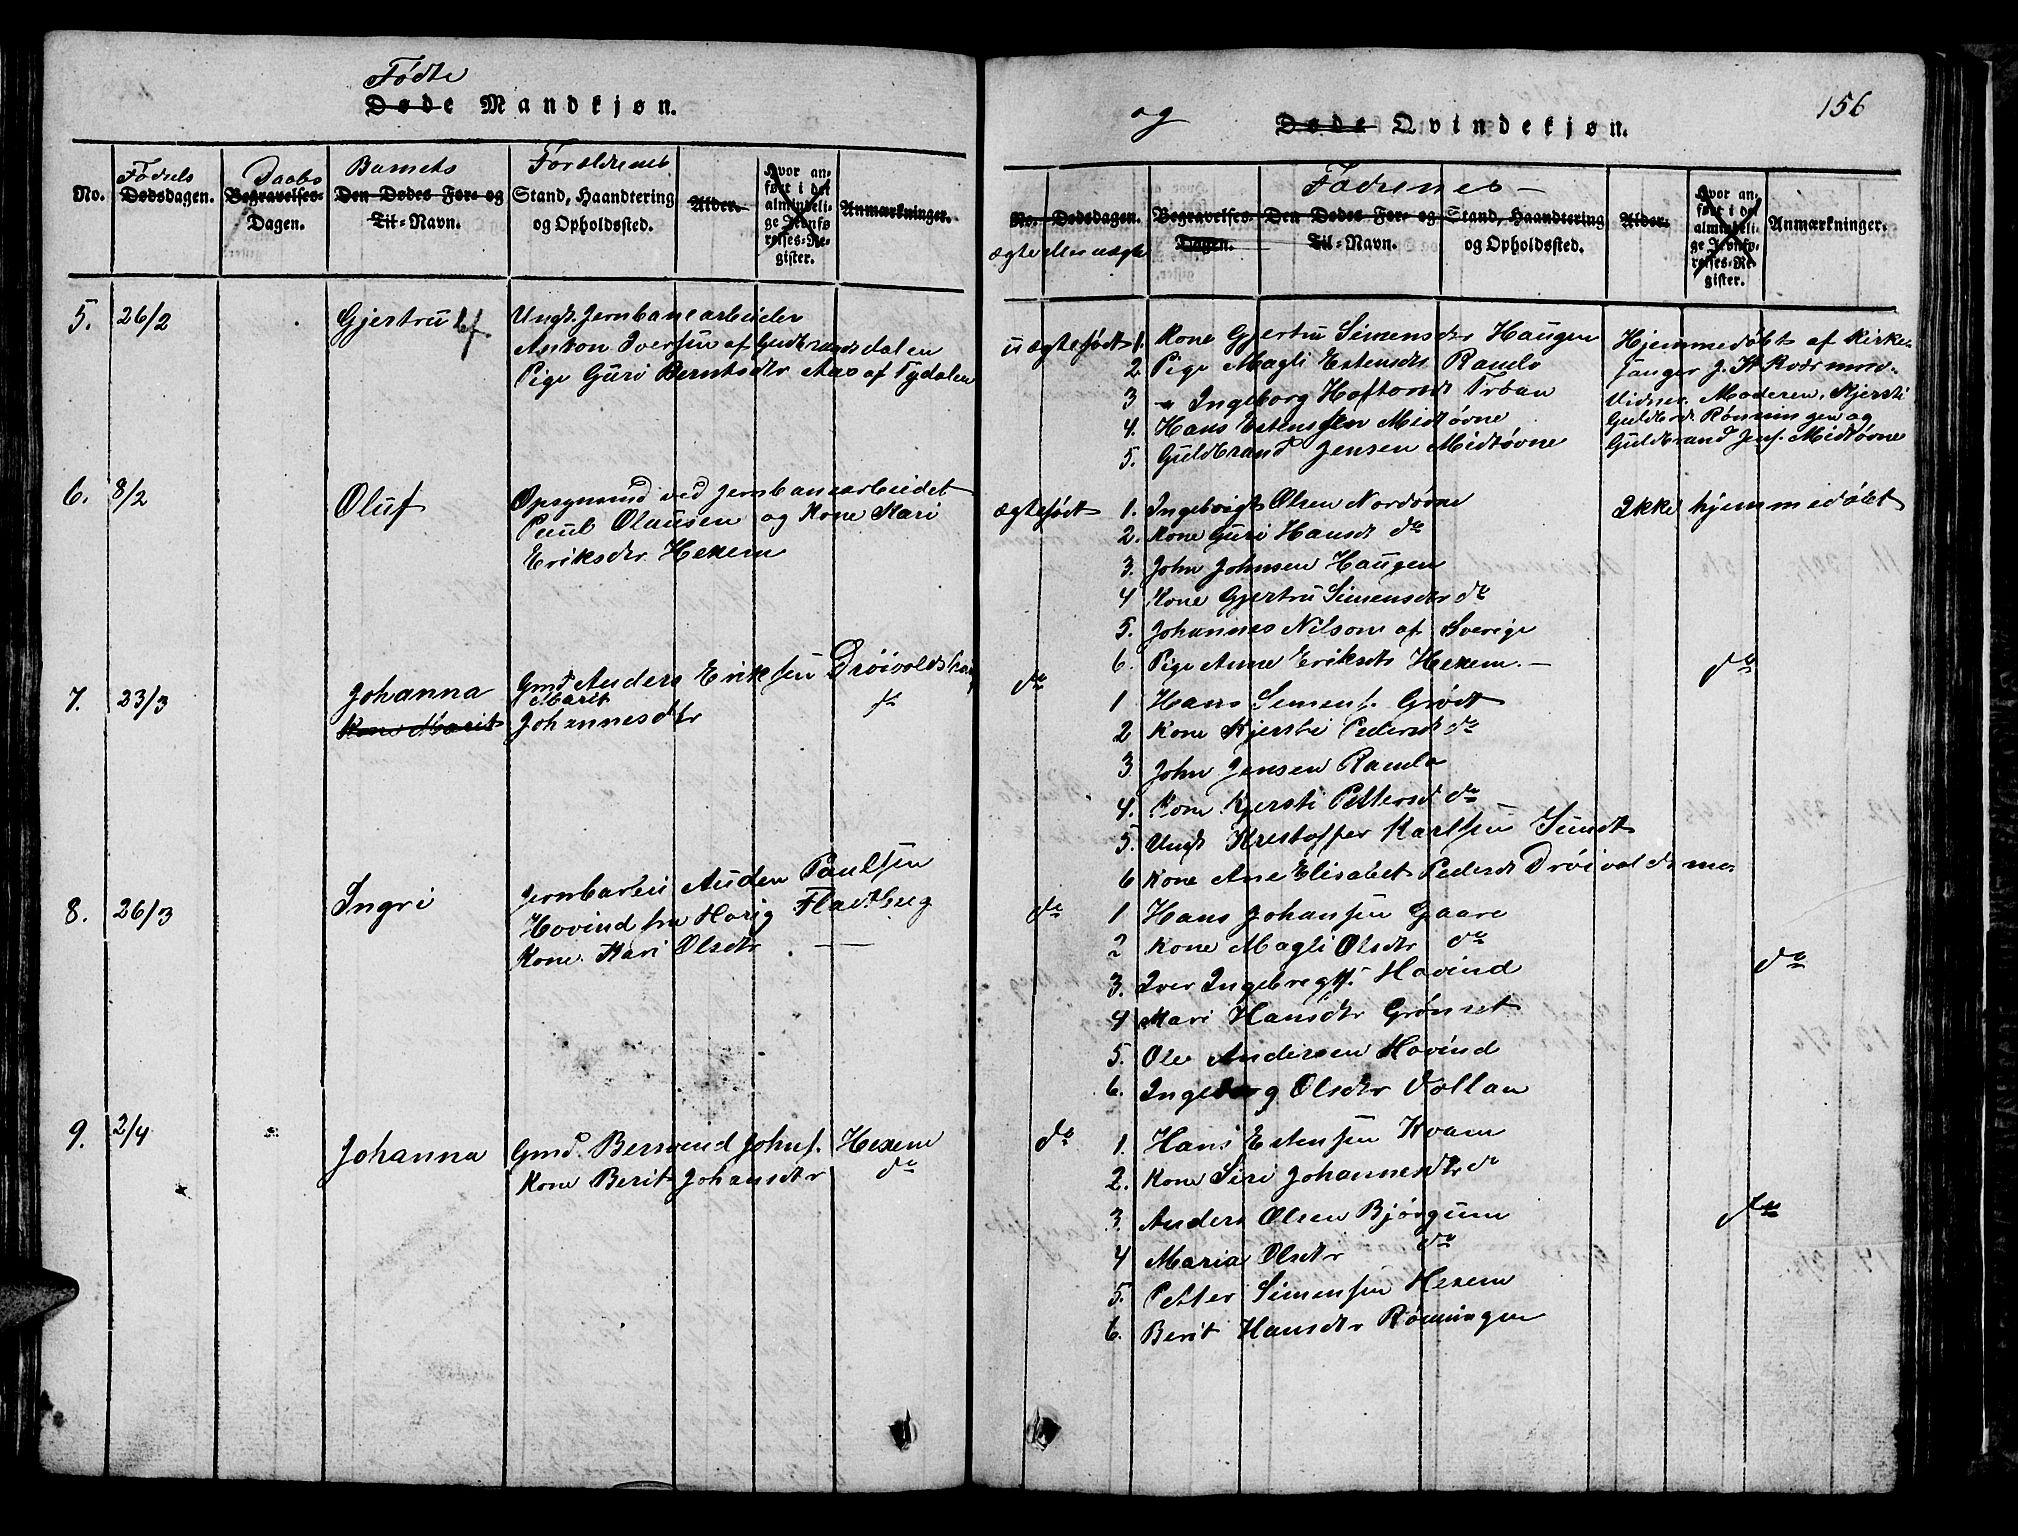 Fødte
Døde Mandkjøn.
No.
Fødsels
Dødsdagen.
Daabs
Begravelses-
Dagen.
Barnets
Den Dødes For- og
Til-Navn.
Forældrenes
Stand, Haandtering
og Opholdssted.
Alder.
Hvor an-
ført i det
almindeli-
ge Jevnfø-
relses-Re-
gister.
Anmærkninger.
5. 26/2 Gjertru
Ungk. Jernbanearbeider
Anton Iversen af Gudbrandsdalen
Pige Guri Berntsdtr Aas af Tydalen
6. 8/2 Oluf
Opsynsmd ved Jernbanearbeidet
Paul Olausen og Kone Kari
Eriksdtr Hexem
7. 23/3 Johanna
Kone Marit
Gmd Anders Eriksen Drøivolds
Marit
Johannesdtr
8. 26/3 Ingri
Jernbarbei Auden Paulsen
Hovind fra Horig Fladtberg
Kone Kari Olsdtr
9. 2/4 Johanna
Gmd. Bersvend Johns. Hexem
Kone Berit Johansdtr do
og
Døde Qvindekjøn.
156
No. Dødsdagen.
ægte eller uægte
Begravelses-
Dagen.
Fadrenes
Den Dødes For- og
Til-Navn.
Stand, Haandtering
og Opholdssted.
Alder.
Hvor an-
ført i det
almindeli-
ge Jevnfø-
relses-Re-
gister.
Anmærkninger.
uægtefødt 1. Kone Gjertru Simensdtr Haugen
2 Pige Magli Estensdtr Ramlo
3 " Ingeborg Haftorsdt Trøan
4. Hans Estensen Midtøvne
5. Guldbrand Jensen Midtøvne
Hjemmedøbt af Kirke-
sanger J. H. Kværnmo.
Vidner Moderen, Kjersti
Guldbrd Rønningen og
Guldbrand Jens. Midtøvne
ægtefødt 1. Ingebrigt Olsen Nordøvne
2. Kone Guri Hansdt do
3. John Johnsen Haugen
4 Kone Gjertru Simensdtr do
5. Johannes Nilson af Sverige
6. Pige Anne Eriksdtr Hexem.
Ikke hjemmedøbt
do
1 Hans Simens. Grødt
2 Kone Kjersti Pedersdt do
3 John Jensen Ramlo
4. Kone Kjersti Pettersd do
5. Ungk Kristoffer Karlsen Sundt
6 Kone Ane Elisabet Pedersdt Drøivoldsmo
do
do
1 Hans Johansen Gaare
2 Kone Magli Olsdtr do
3. Iver Ingebregts. Hovind
4 Mari Hansdtr Grønset
5. Ole Andersen Hovind
6. Ingeborg Olsdtr Vollan
do
do
1. Hans Estensen Kvam
2. Kone Siri Johannesdtr do
3. Anders Olsen Bjørgum
4 Maria Olsdtr do
5. Petter Simensen Hexem
6. Berit Hansdtr Rønningen
do